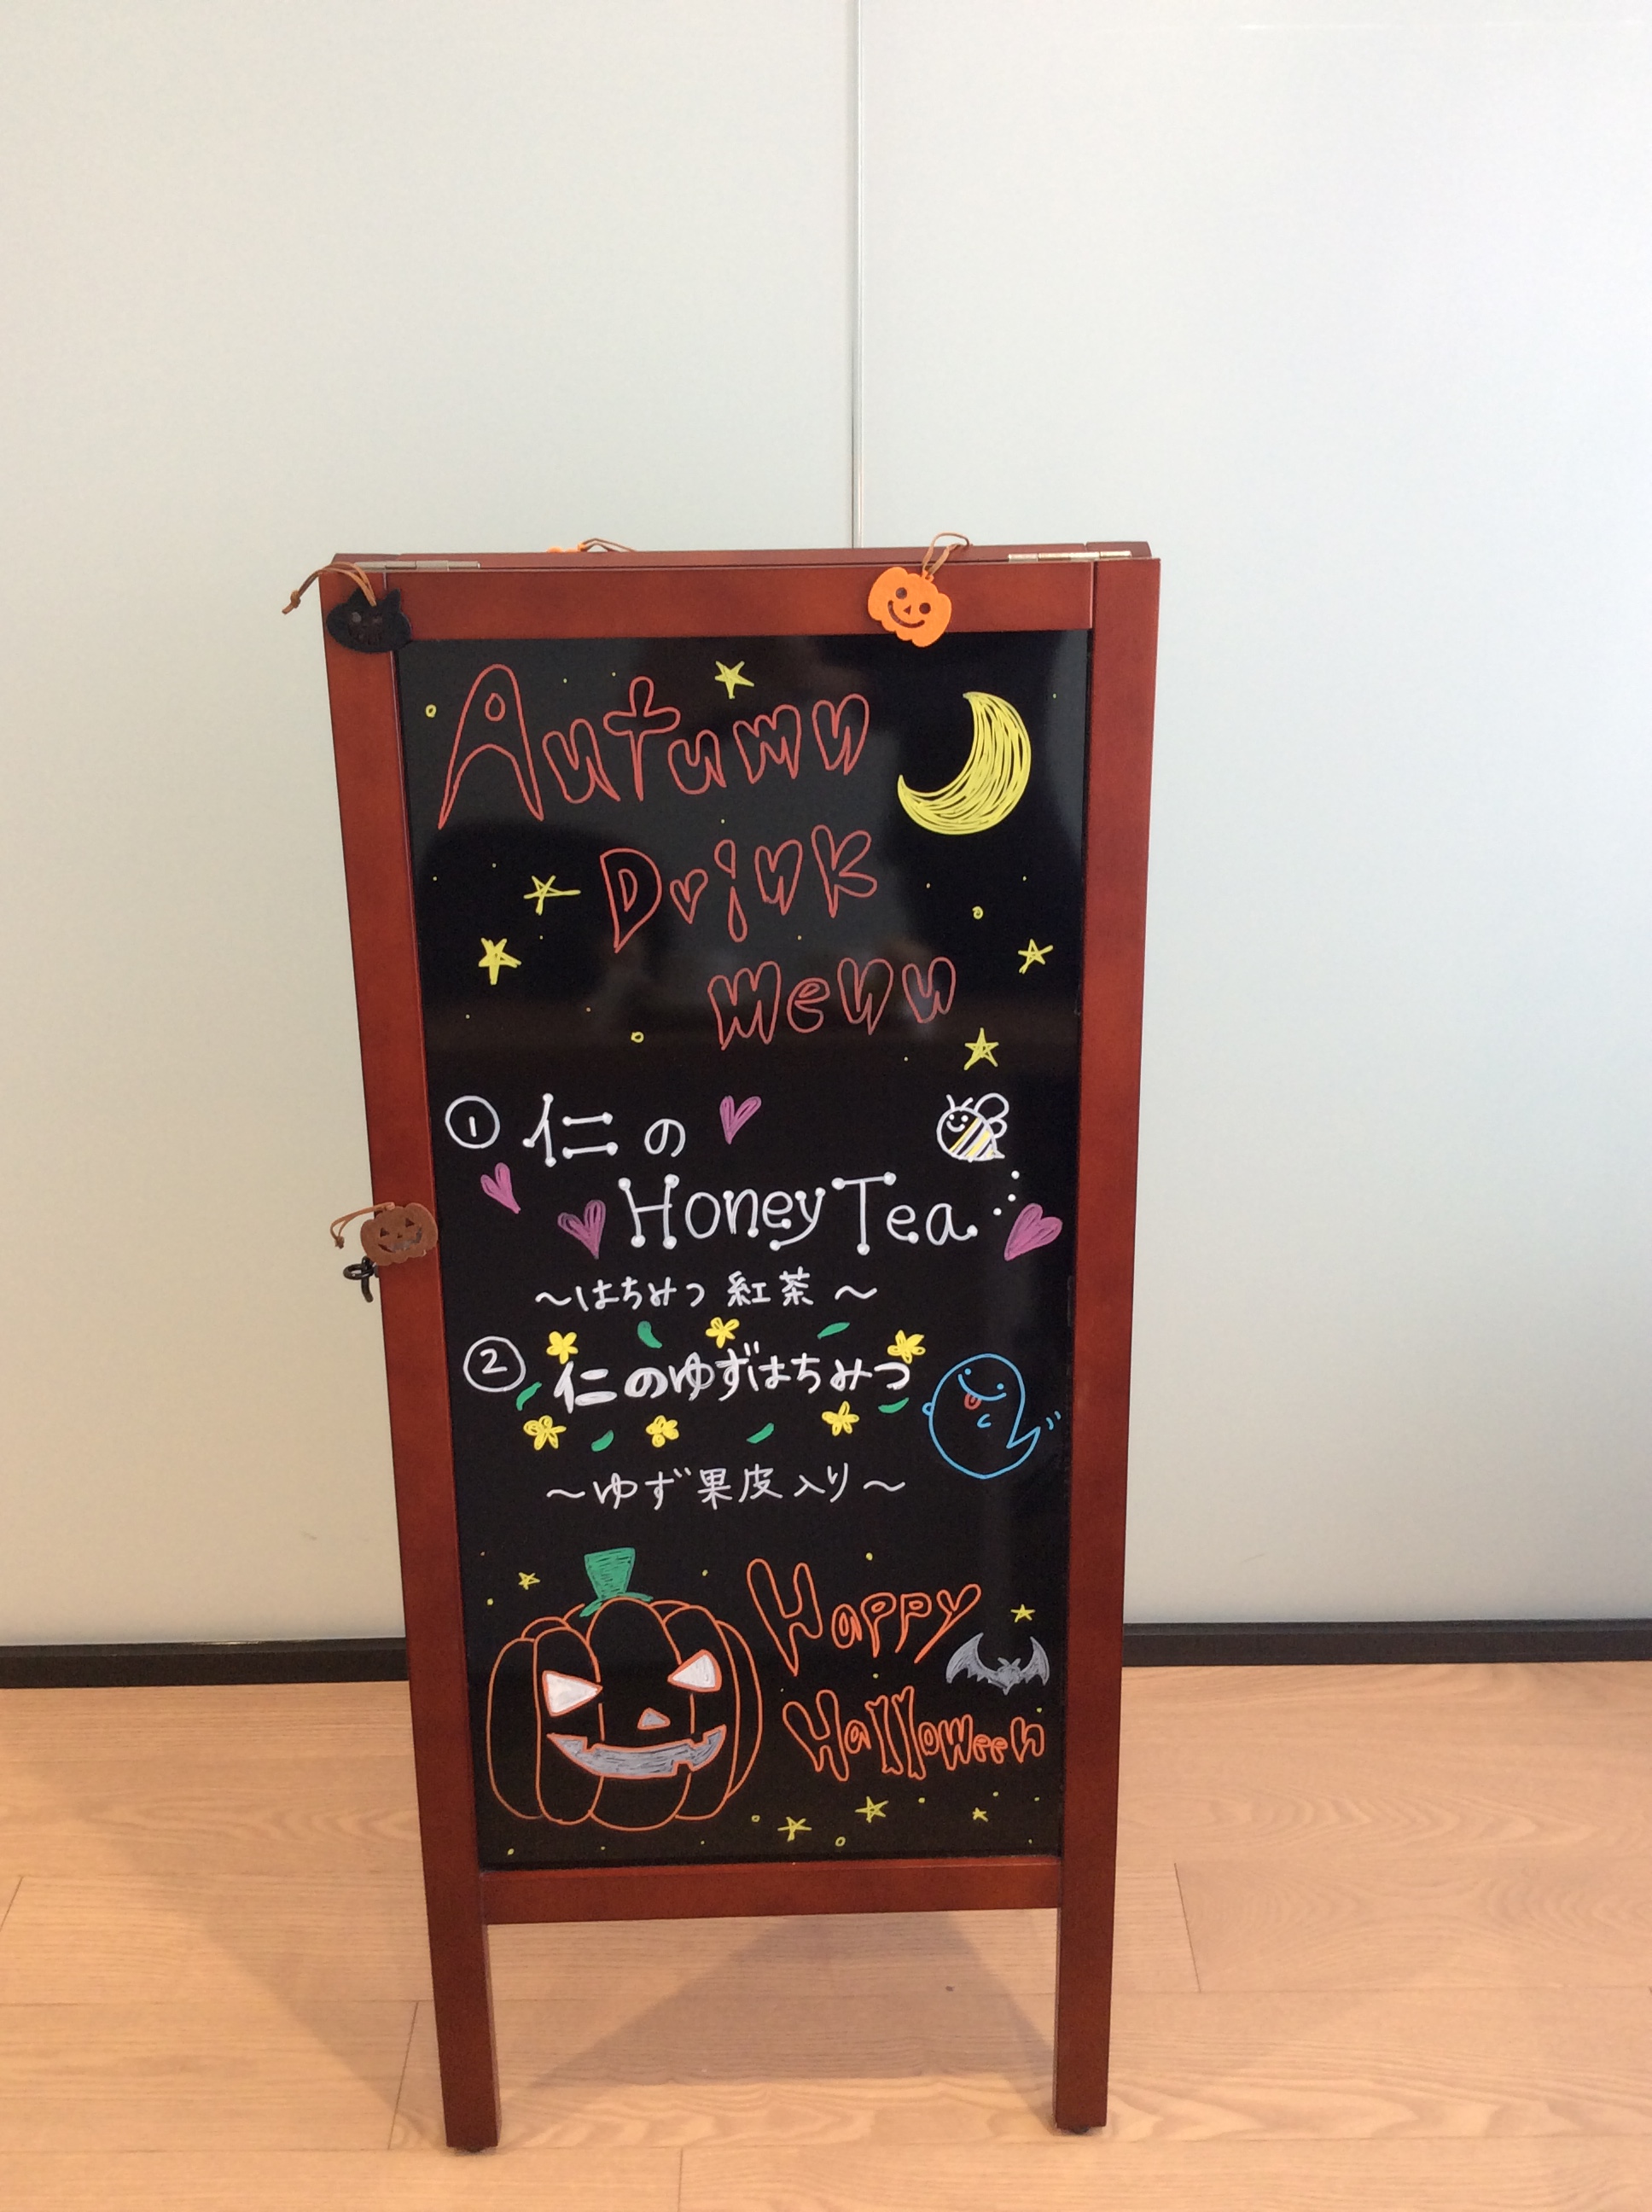 Autumn
Drink
menu
① 仁の
Honey Tea
～はちみつ紅茶～
② 仁のゆずはちみつ
～ゆず果皮入り～
Happy
Halloween